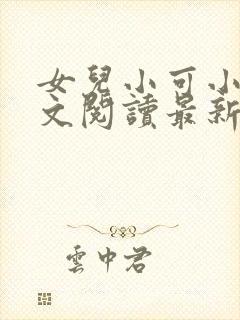 女兒小可小
文閱讀最新
雲中君